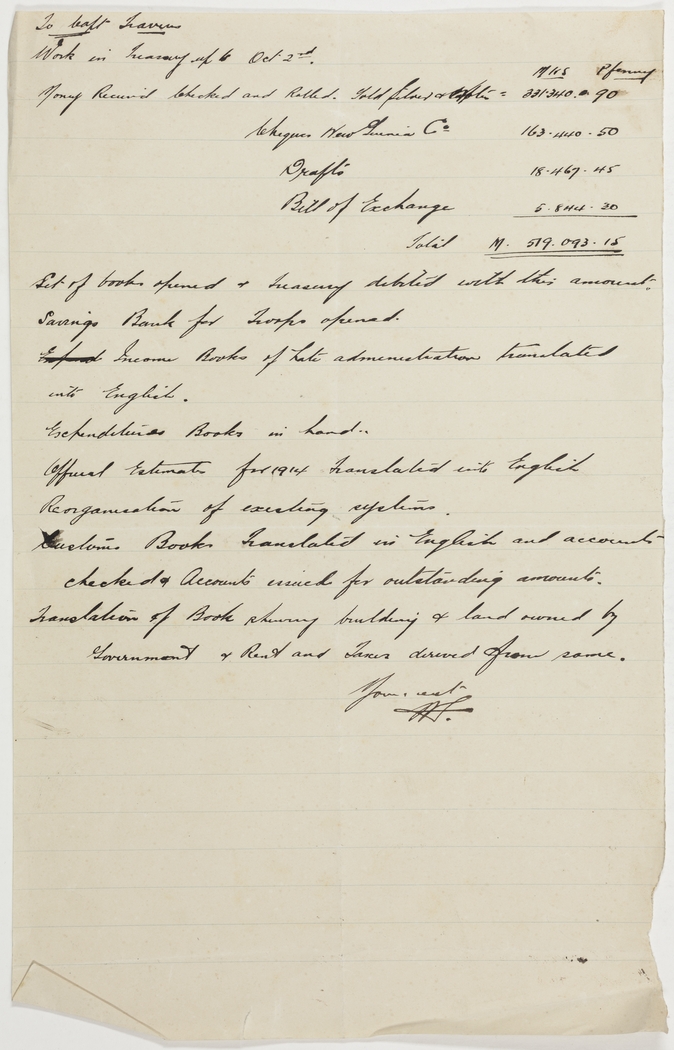 To Capt Travers
Work in Treasury up to Oct 2nd.
Mks Pfennig
Money Received Checked and Rolled. Gold Silver & = 331.340.90
Cheques New Guinea Co 163.440.50
Drafts 18.467.45
Bill of Exchange 5.844.30
Total M. 519.093.15
Set of books opened & Treasury debited with this amount.
Savings Bank for Troops opened.
Income Books of late administration translated
into English.
Expenditures Books in hand..
Official Estimates for 1914 Translated into English
Reorganisation of existing systems.
Customs Books Translated in English and accounts
checked & Accounts issued for outstanding amounts.
Translation of Book shewing building & land owned by
Government & Rent and Taxes derived from same.